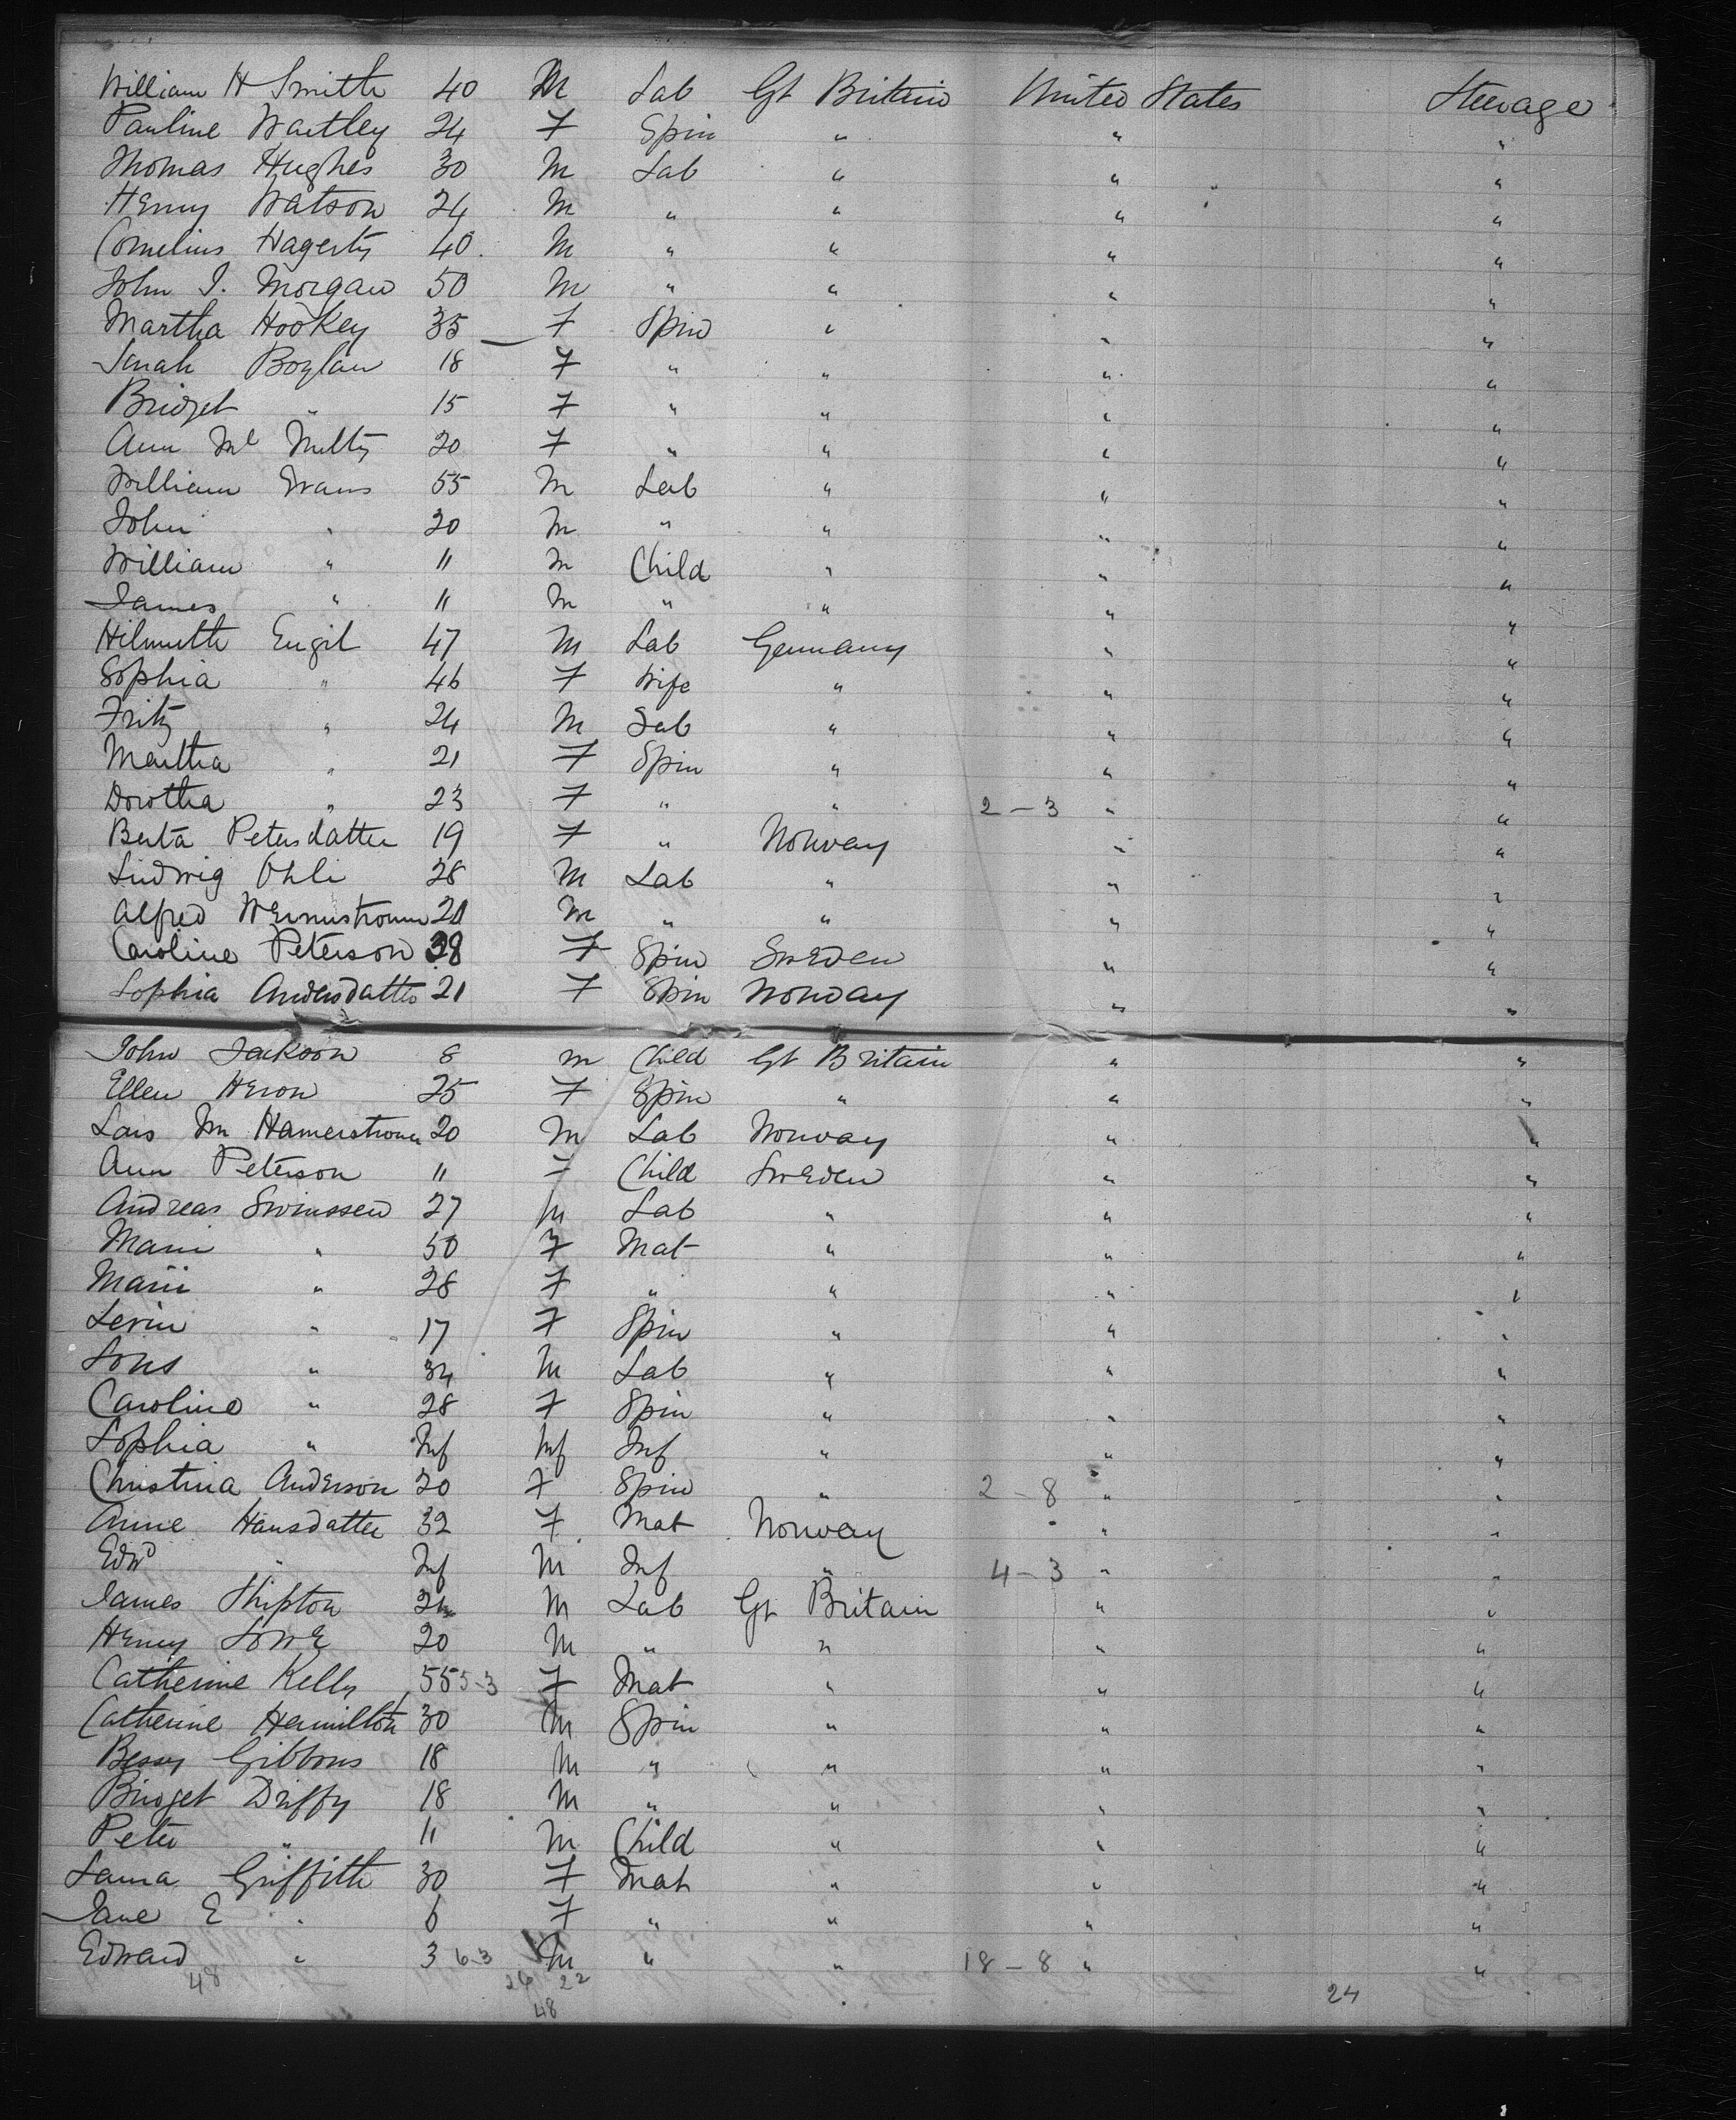 William H Smith 40 M Lab Gt Britain United States Steerage
Pauline Wartley 24 F Spin " " "
Thomas Hughes 30 M Lab " " "
Henry Watson 24 M " " " "
Cornelius Hagerty 40 M " " " "
John I. Morgan 50 M " " " "
Martha Hookey 35 F Spin " " "
Sarah Boylan 18 F " " " "
Bridget " 15 F " " " "
Ann Mc Nulty 20 F " " " "
William Evans 55 M Lab " " "
John " 20 M " " " "
William " 11 M Child " " "
James " 11 M " " " "
Hilmuth Engil 47 M Lab Germany " "
Sophia " 46 F Wife " " "
Fritz " 24 M Lab " " "
Martha " 21 F Spin " " "
Dorotha " 23 F " " 2-3 " "
Berta Petersdatter 19 F " Norway " "
Ludwig Ohli 28 M Lab " " "
Alfred 21 M " " " "
Caroline Peterson 38 F Spin Sweden " "
Sophia Andersdatter 21 F Spin Norway " "
John Jackson 8 M Child Gt Britain " "
Ellen Heron 25 F Spin " " "
Lars M Hamerstrom 20 M Lab Norway " "
Ann Peterson 11 F Child Sweden " "
Andreas Swinssen 27 M Lab " " "
Marii " 50 F Mat " " "
Marii " 28 F " " " "
Lerin " 17 F Spin " " "
Sons " 34 M Lab " " "
Caroline " 28 F Spin " " "
Sophia " Inf Inf Inf " " "
Christina Anderson 20 F Spin " 2-8 " "
Anne Hansdatter 32 F Mat Norway " "
Edwd " Inf M Inf " 4-3 " "
James Shipton 24 M Lab Gt Britain " "
Henry Lowe 20 M " " " "
Catherine Kelly 55 5-3 F Mat " " "
Catherine Hamilton 30 M Spin " " "
Bessy Gibbons 18 M " " " "
Bridget Duffy 18 M " " " "
Peter " 11 M Child " " "
Laura Griffith 30 F Mat " " "
Jane E " 6 F " " " "
Edward " 3 6-3 M " " 18-8 " "
48 26 22 24
48